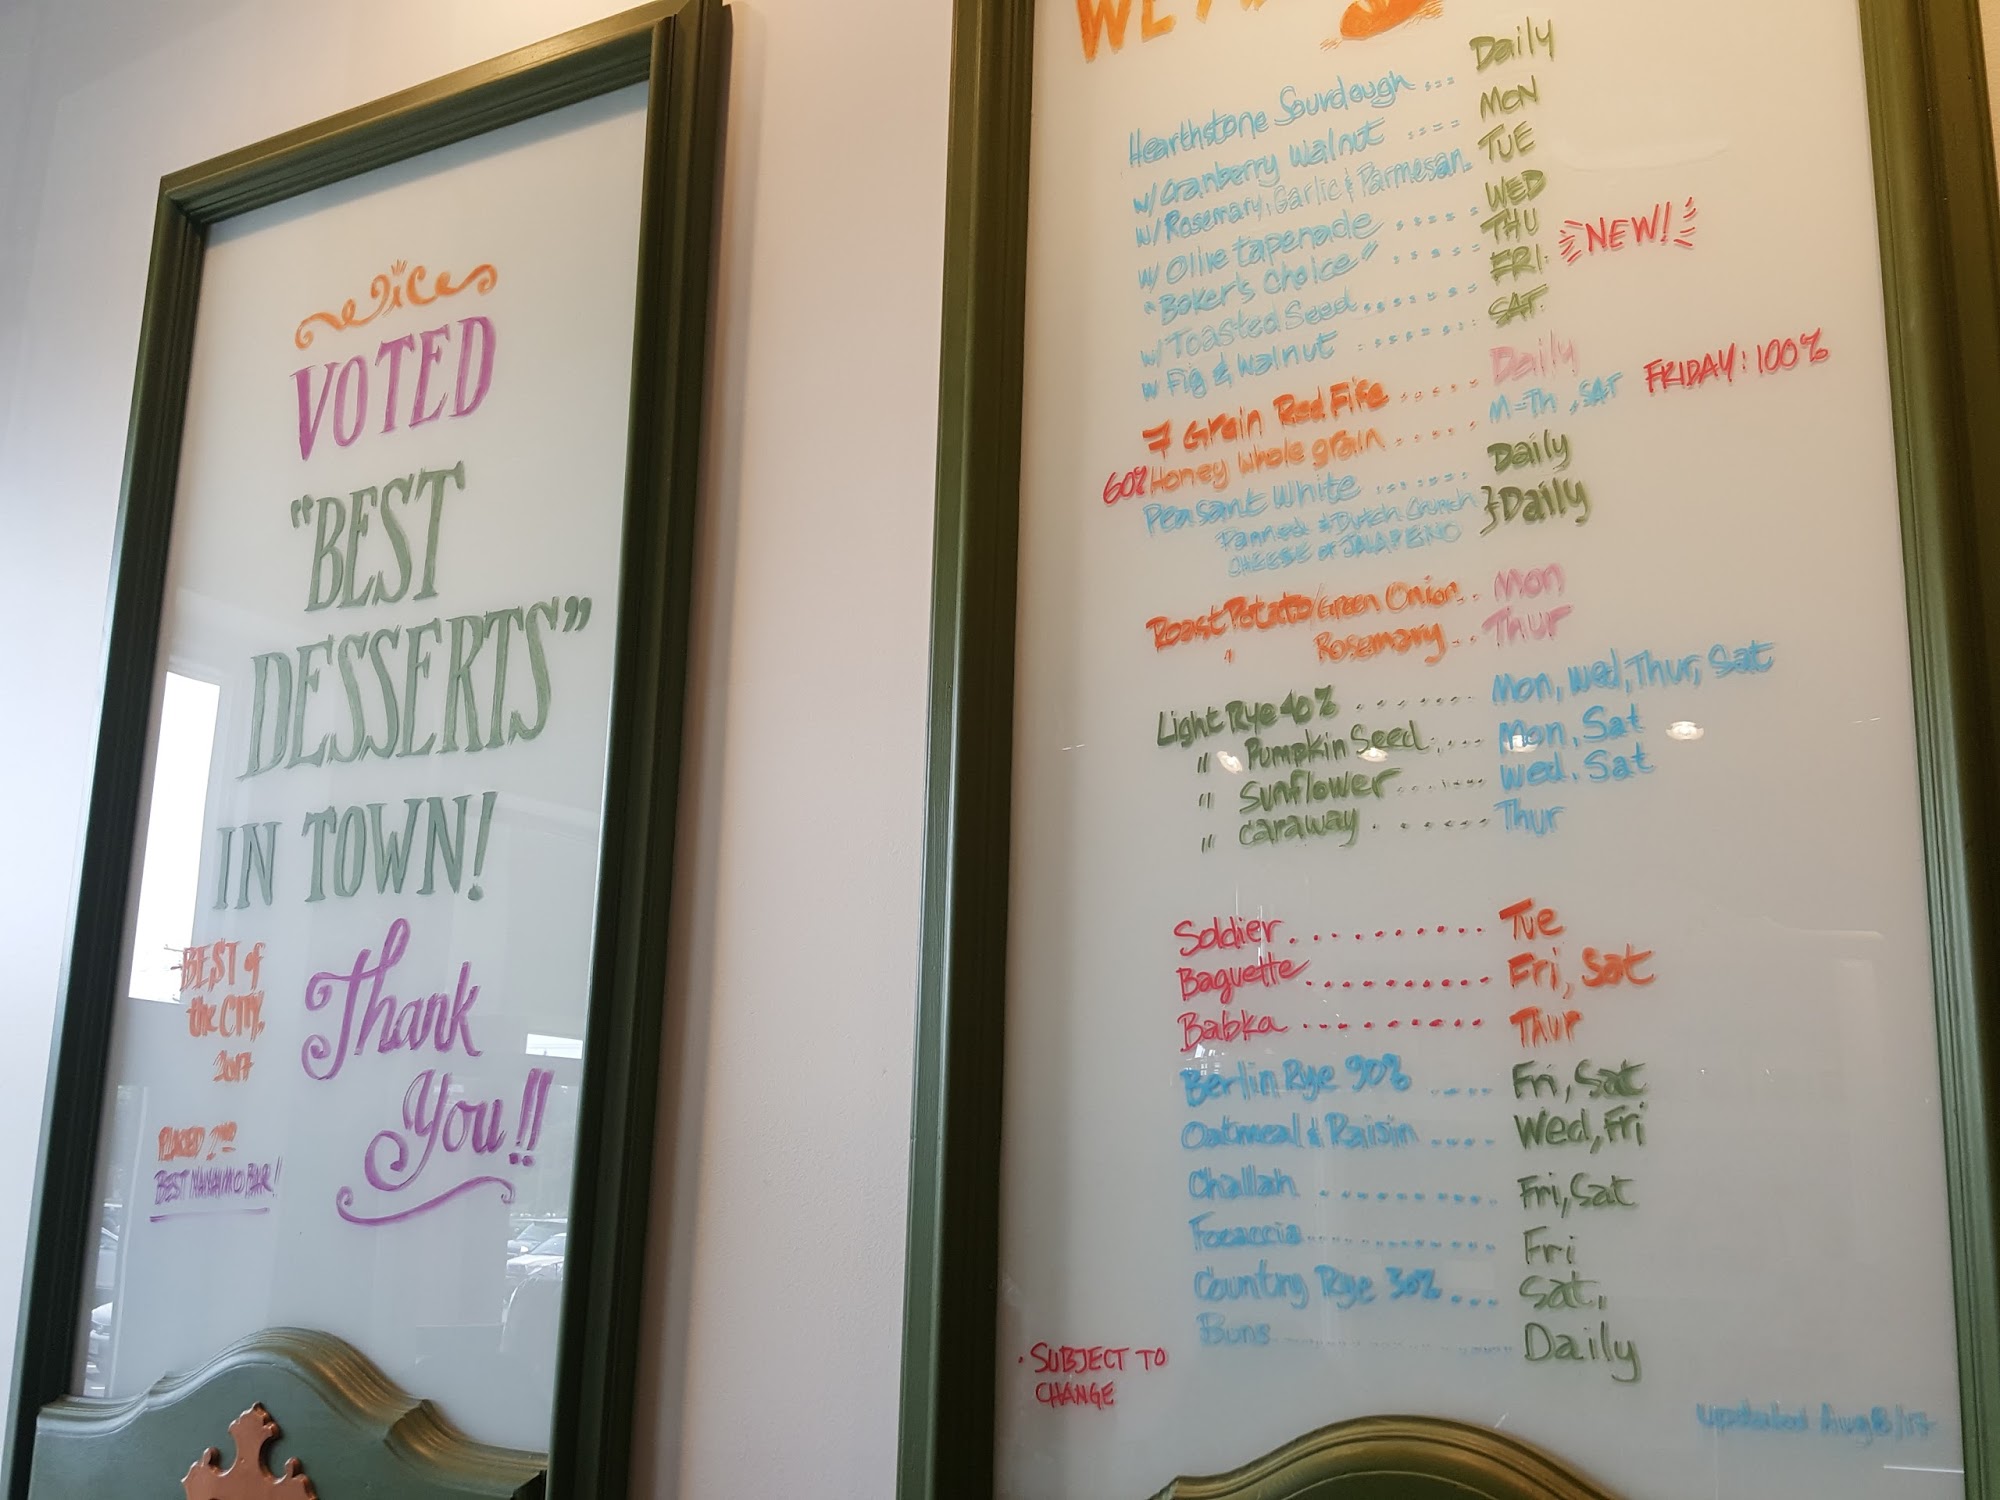 VOTED
"BEST
DESSERTS"
IN TOWN!
BEST of
the CITY,
2017
Thank
You!!
PLACED 2ND
BEST NANAIMO BAR!
WE
Hearthstone Sourdough .... Daily
w/ Cranberry Walnut .... MON
w/ Rosemary, Garlic & Parmesan. TUE
w/ Olive tapenade ..... WED
"Baker's Choice" ..... THU NEW!
w/ Toasted Seed ....... FRI.
w Fig & Walnut ....... SAT.
7 Grain Red Fife ..... Daily
60% Honey Whole grain ..... M-Th, SAT FRIDAY: 100%
Peasant White ....... Daily
Panned & Dutch Crunch } Daily
CHEESE or JALAPENO
Roast Potato/Green Onion.. Mon
" Rosemary.. Thur
Light Rye 40% ....... Mon, Wed, Thur, Sat
" Pumpkin Seed .... Mon, Sat
" Sunflower ...... Wed. Sat
" Caraway ...... Thur
Soldier .......... Tue
Baguette .......... Fri, Sat
Babka .......... Thur
Berlin Rye 90% .... Fri, Sat
Oatmeal & Raisin .... Wed, Fri
Challah .......... Fri, Sat
Focaccia .......... Fri
Country Rye 30% ... Sat.
Buns .......... Daily
• SUBJECT TO
CHANGE
updated Aug8/17